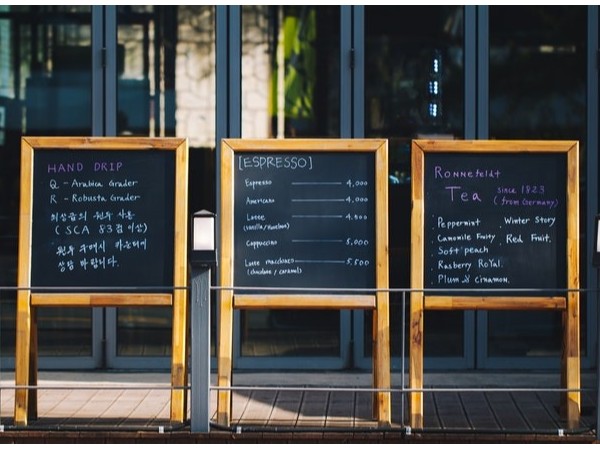 HAND DRIP
Q - Arabica Grader
R - Robusta Grader
최상급의 원두 사용
( SCA 83점 이상)
원두 구매시 카운터에
상담 바랍니다.
[ESPRESSO]
Espresso 4,000
Americano 4,000
Latte 4,500
(vanilla / hazelnut)
Cappuccino 5,000
Latte macchiato 5,500
(chocolate / caramel)
Ronnefeldt
Tea since 1823
(from Germany)
. Peppermint . Winter Story
. Camomile Fruity . Red Fruit.
. Soft peach
. Rasberry Royal.
. Plum & cinamon.